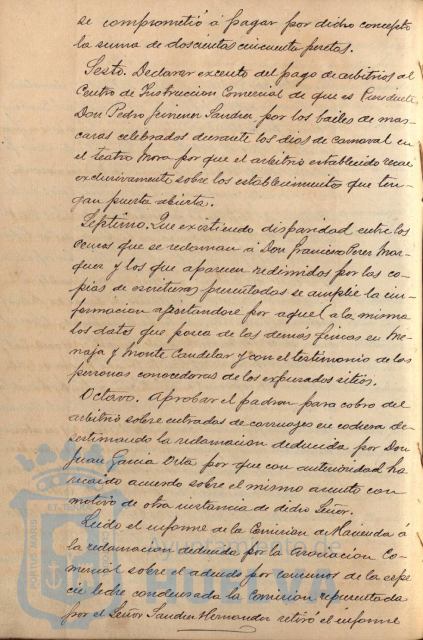 se comprometió á pagar por dicho concepto
la suma de doscientas cincuenta pesetas.
Sesto. Declarar excento del pago de arbitrios al
Centro de Instruccion Comercial de que es Presidente,
Don Pedro Jimenez Sanchez por los bailes de mas-
caras celebrados durante los dias de carnaval en
el teatro Mora por que el arbitrio establecido recae
exclusivamente sobre los establecimientos que ten-
gan puerta abierta.
Septimo. Que existiendo disparidad entre los
censos que se reclaman á Don Francisco Perez Mar-
quez y los que aparecen redimidos por las co-
pias de escrituras presentadas se amplie la in-
formacion aportandose por aquel a la misma
los datos que posea de las demás fincas en Me-
naja y Monte Candelar y con el testimonio de las
personas conocedoras de los expresados sitios.
Octavo. Aprobar el padron para cobro del
arbitrio sobre entradas de carruajes en cochera de-
sestimando la reclamacion deducida por Don
Juan Garcia Orta por que con anterioridad ha
recaido acuerdo sobre el mismo asunto con
motivo de otra instancia de dicho Señor.
Leido el informe de la Comision de Hacienda á
la reclamacion deducida por la Asociacion Co-
mercial sobre el adeudo por consumo de la espe-
cie leche condensada la Comision representada
por el Señor Sanchez Hernandez retiró el informe
PORTUS MARIS
ET TERRAE